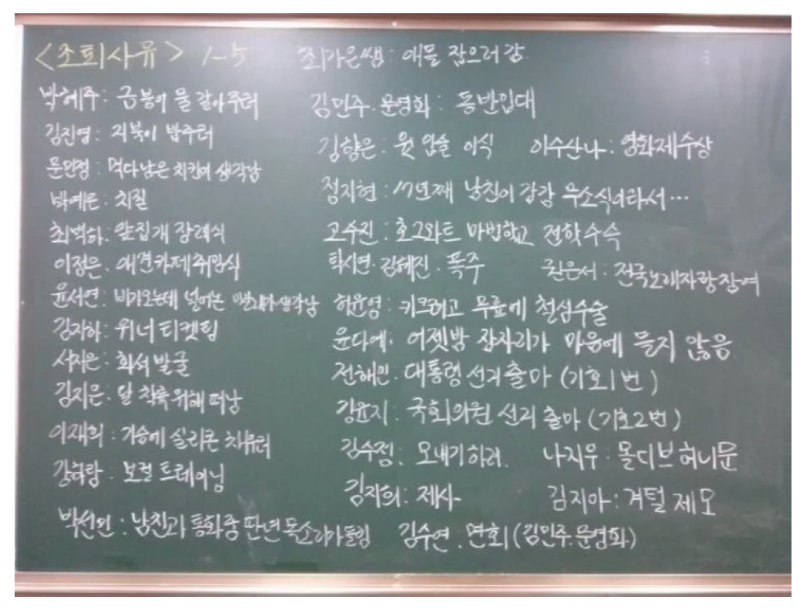 <조퇴사유> 1-5
최가은쌤: 애들 잡으러 감
박혜주: 금붕어 물 갈아주러
김진영: 거북이 밥주러
문민정: 먹다남은 치킨이 생각남
박예은: 치질
최백하: 앞집개 장례식
이정은: 애견카페 취임식
윤서연: 비가오는데 널어논 빨래가 생각남
김지하: 위너 티켓팅
서지은: 화석 발굴
김지은: 달 착륙 위해 떠남
이재희: 가슴에 실리콘 채우러
강하랑: 보컬 트레이닝
박선민: 남친과 통화중 딴년 목소리가 들림
김민주.문영화: 동반입대
김향은: 윗 입술 이식
이수산나: 영화제수상
정지현: 17년째 남친이 감감 무소식이라서…
고수진: 호그와트 마법학교 전학수속
탁시연.김혜진. 폭주
권은서: 전국노래자랑참여
허윤영: 키크려고 무릎에 철심수술
윤다예: 어젯밤 잠자리가 마음에 들지 않음
전해인: 대통령 선거출마 (기호1번)
강윤지: 국회의원 선거 출마 (기호2번)
김수정: 모내기하러.
나지우: 몰디브허니문
김지희: 제사
김지아: 겨털 제모
김수연. 면회 (김민주.문영화)